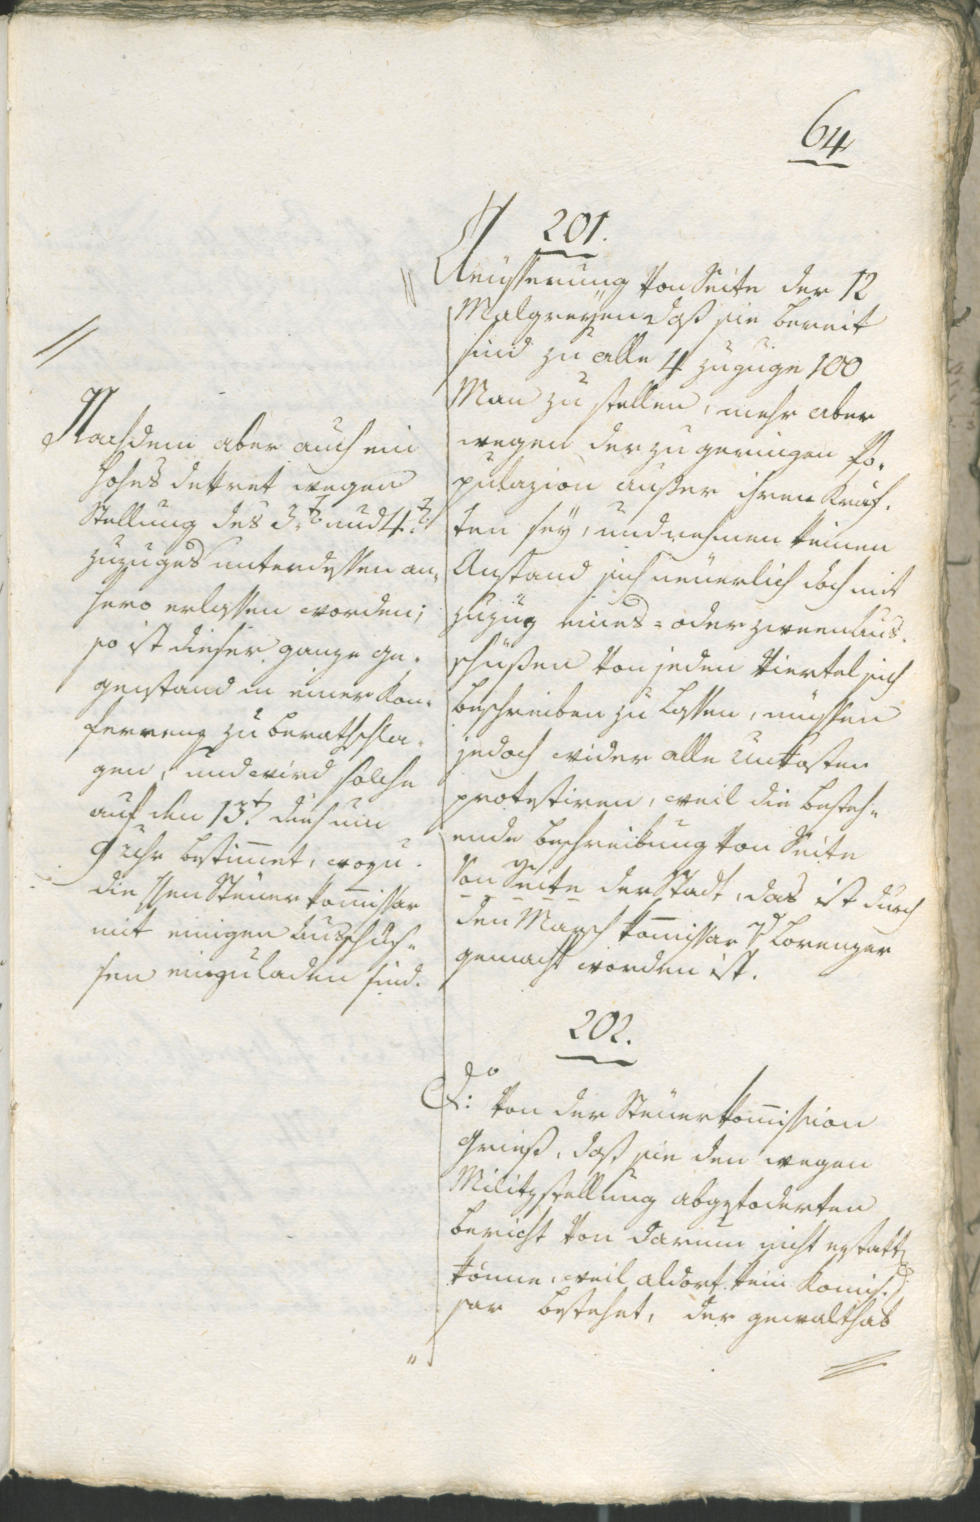 64
201.
Aeüsserung von Seite der 12
Malgreÿen daß sie bereit
sind zu alle 4 Zuzüge 100
Man zu stellen, mehr aber
wegen der zu geringen Po¬
pulazion außer ihren Kräf¬
ten seÿ, und nehmen keinen
Anstand sich neüerlich doch mit
Zuzug eines= oder zween Aus¬
schüßen von jeden Viertel sich
beschreiben zu lassen, müssen
jedoch wider alle Unkosten
protestiren, weil die besteh¬
ende Beschreibung von Seite
von Seite der Stadt, das ist durch
den Marsch kom̅issar v Lorenzer
gemacht worden ist.
Nachdem aber auch ein
hohes dekret wegen
Stellung des 3.t und 4.t
Zuzuges unterdessen an¬
hero erlassen worden;
so ist dieser ganze Ge¬
genstand in einer Kon¬
ferrenz zu berathschla¬
gen, und wird solche
auf den 13.t dies um
9 Uhr bestim̅et, wozu
die Hen Steüerkom̅issar
mit einigen Ausschüs¬
sen einzuladen sind.
202.
do: von der Steüerkom̅ission
Grieß, daß sie den wegen
Militzstellung abgefoderten
Bericht von darum nicht erstatten
könne, weil aldort kein Komis¬
sar bestehet, der gewalthab